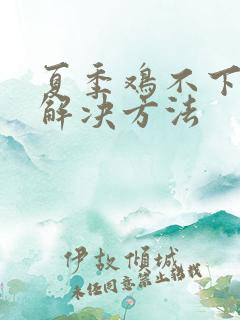 夏季鸡不下
解决方法
伊故倾城
未经同意禁止转载